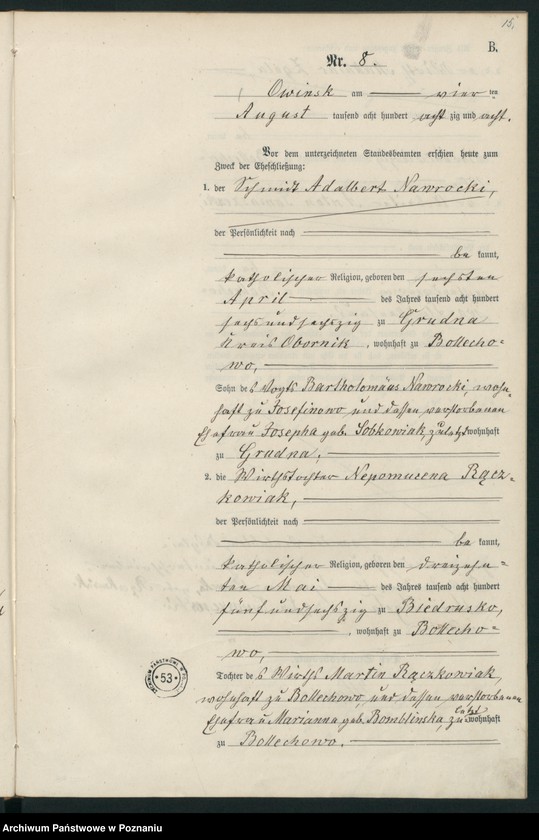 15.
B.
Nr. 8.
Owinsk am vier ten
August tausend acht hundert acht zig und acht.
Vor dem unterzeichneten Standesbeamten erschien heute zum
Zweck der Eheschließung:
1. der Schmidt Adalbert Nawrocki,
der Persönlichkeit nach
be kannt,
katholischer Religion, geboren den sechsten
April des Jahres tausend acht hundert
sechsundsechszig zu Grudna
Kreis Obornik, wohnhaft zu Bollecho=
wo,
Sohn des Vogts Bartholomäus Nawrocki, wohn-
haft zu Josefinowo und dessen verstorbenen
Ehefrau Josepha geb. Sobkowiak, zuletzt wohnhaft
zu Grudna.
2. die Wirthstochter Nepomucena Rącz-
kowiak,
der Persönlichkeit nach
be kannt,
katholischer Religion, geboren den dreizehn=
ten Mai des Jahres tausend acht hundert
fünfundsechszig zu Biedrusko,
, wohnhaft zu Bollecho=
wo,
Tochter des Wirths Martin Rączkowiak,
wohnhaft zu Bollechowo, und dessen verstorbenen
Ehefrau Marianna geb. Bomblinska, zuletzt wohnhaft
zu Bollechowo.
ARCHIWUM PAŃSTWOWE W POZNANIU
53
Archiwum Państwowe w Poznaniu